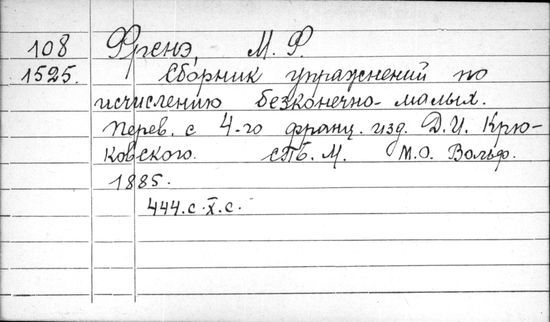 108 Френэ, М. Ф.
1525. Сборник упражнений по
исчислению безконечно-малых.
Перев. с 4-го франц. изд. Д.И. Крю-
ковского. СПб. М. М.О. Вольф.
1885.
444.с.X.с.